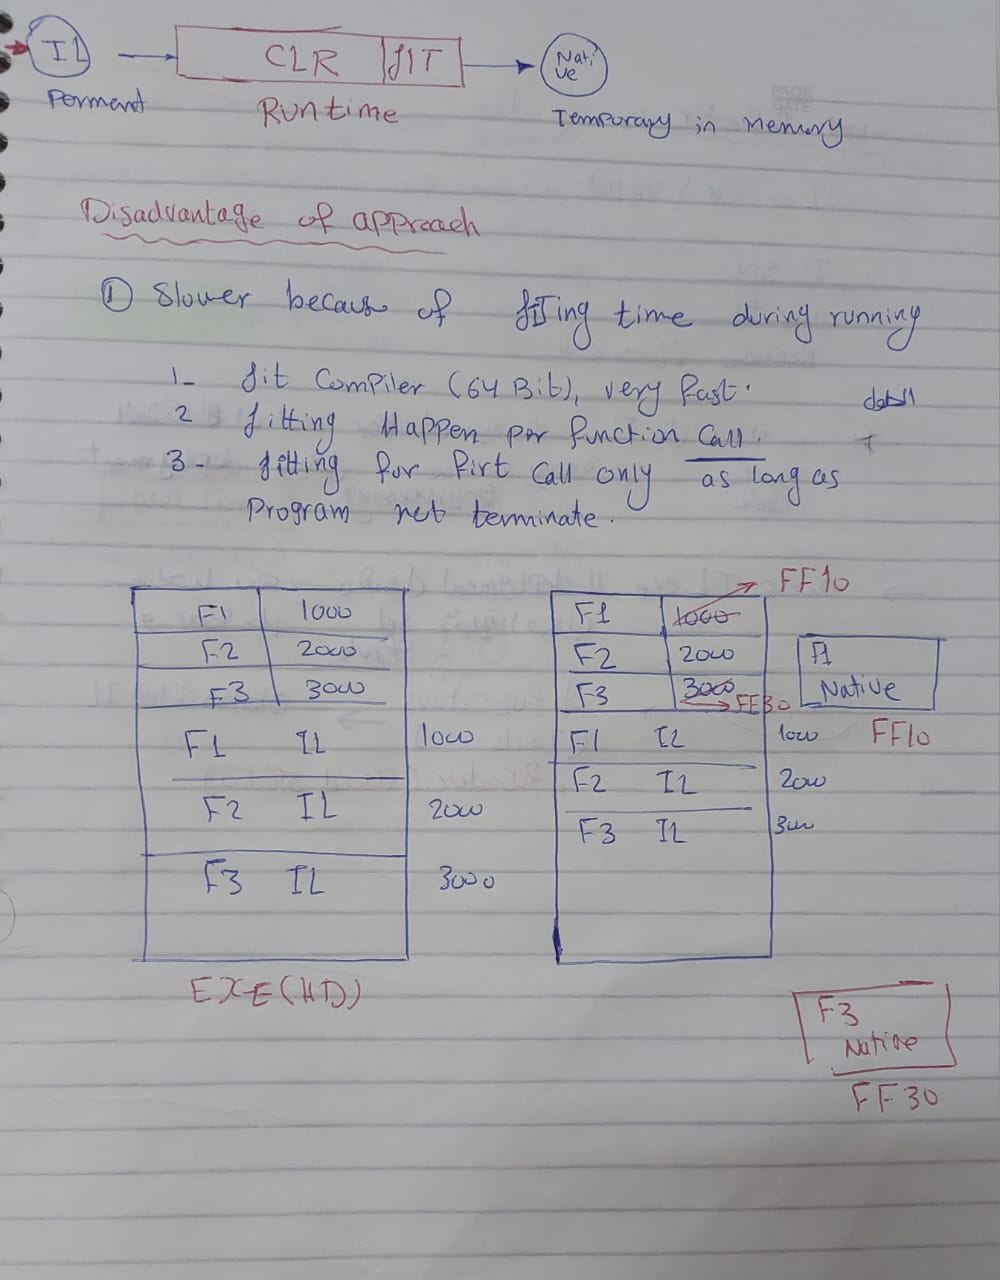 IL CLR JIT Native
Permant Runtime Temporary in memory
Disadvantage of approach
① Slower becaus of JITing time during running
1- Jit Compiler (64 Bit), very fast.
2 Jitting Happen per function Call.
3- Jitting for firt Call only as long as
Program not terminate.
FF10
F1 1000
F2 2000
F3 3000
F1 IL 1000
F2 IL 2000
F3 IL 3000
EXE(HD)
F1 1000
F2 2000
F3 3000 FF30
F1 IL 1000
F2 IL 2000
F3 IL 300
F1
Native
FF10
F3
Native
FF30